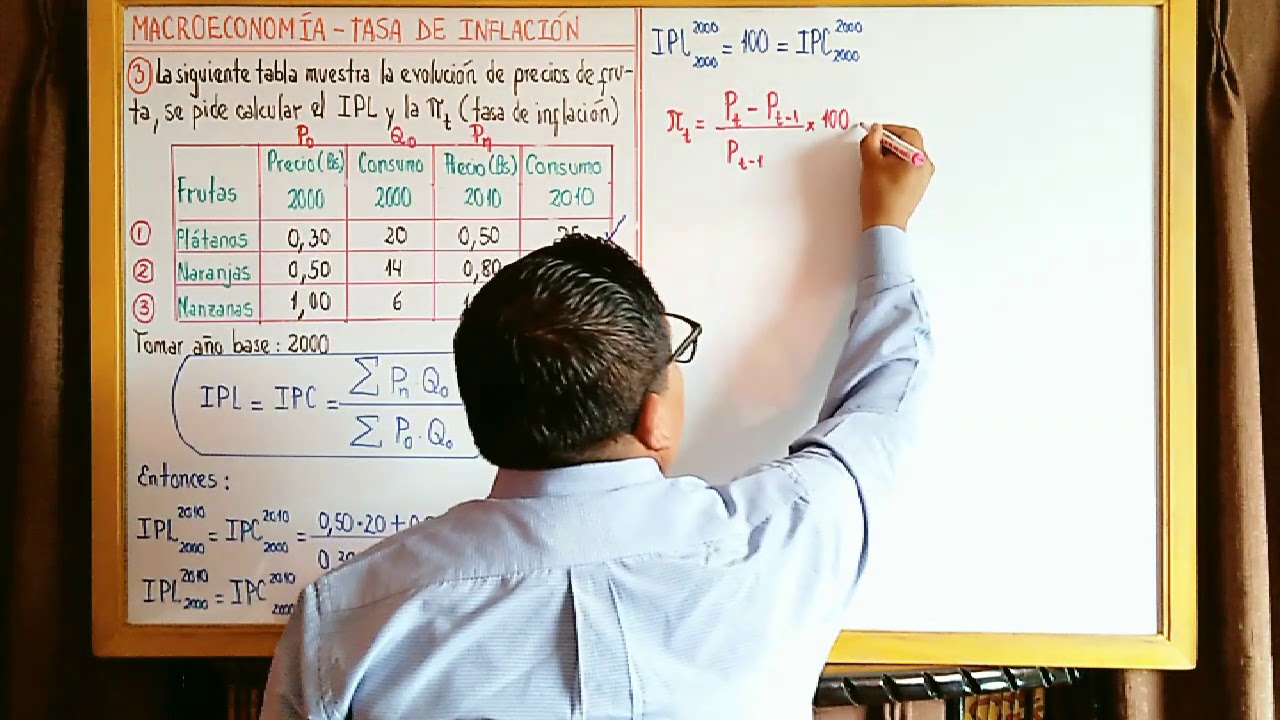 MACROECONOMÍA - TASA DE INFLACIÓN
③ La siguiente tabla muestra la evolución de precios de fru-
ta, se pide calcular el IPL y la π_t (tasa de inflación)
P₀ Q₀ Pₙ
Frutas Precio (Bs) 2000 Consumo 2000 Precio (Bs) 2010 Consumo 2010
① Plátanos 0,30 20 0,50
② Naranjas 0,50 14 0,80
③ Manzanas 1,00 6
Tomar año base: 2000
IPL = IPC = Σ Pₙ·Q₀ / Σ P₀·Q₀
Entonces:
IPL 2010 2000 = IPC 2010 2000 = 0,50·20 +
IPL 2010 2000 = IPC 2010 2000
IPL 2000 2000 = 100 = IPC 2000 2000
π_t = P_t - P_t-1 / P_t-1 × 100